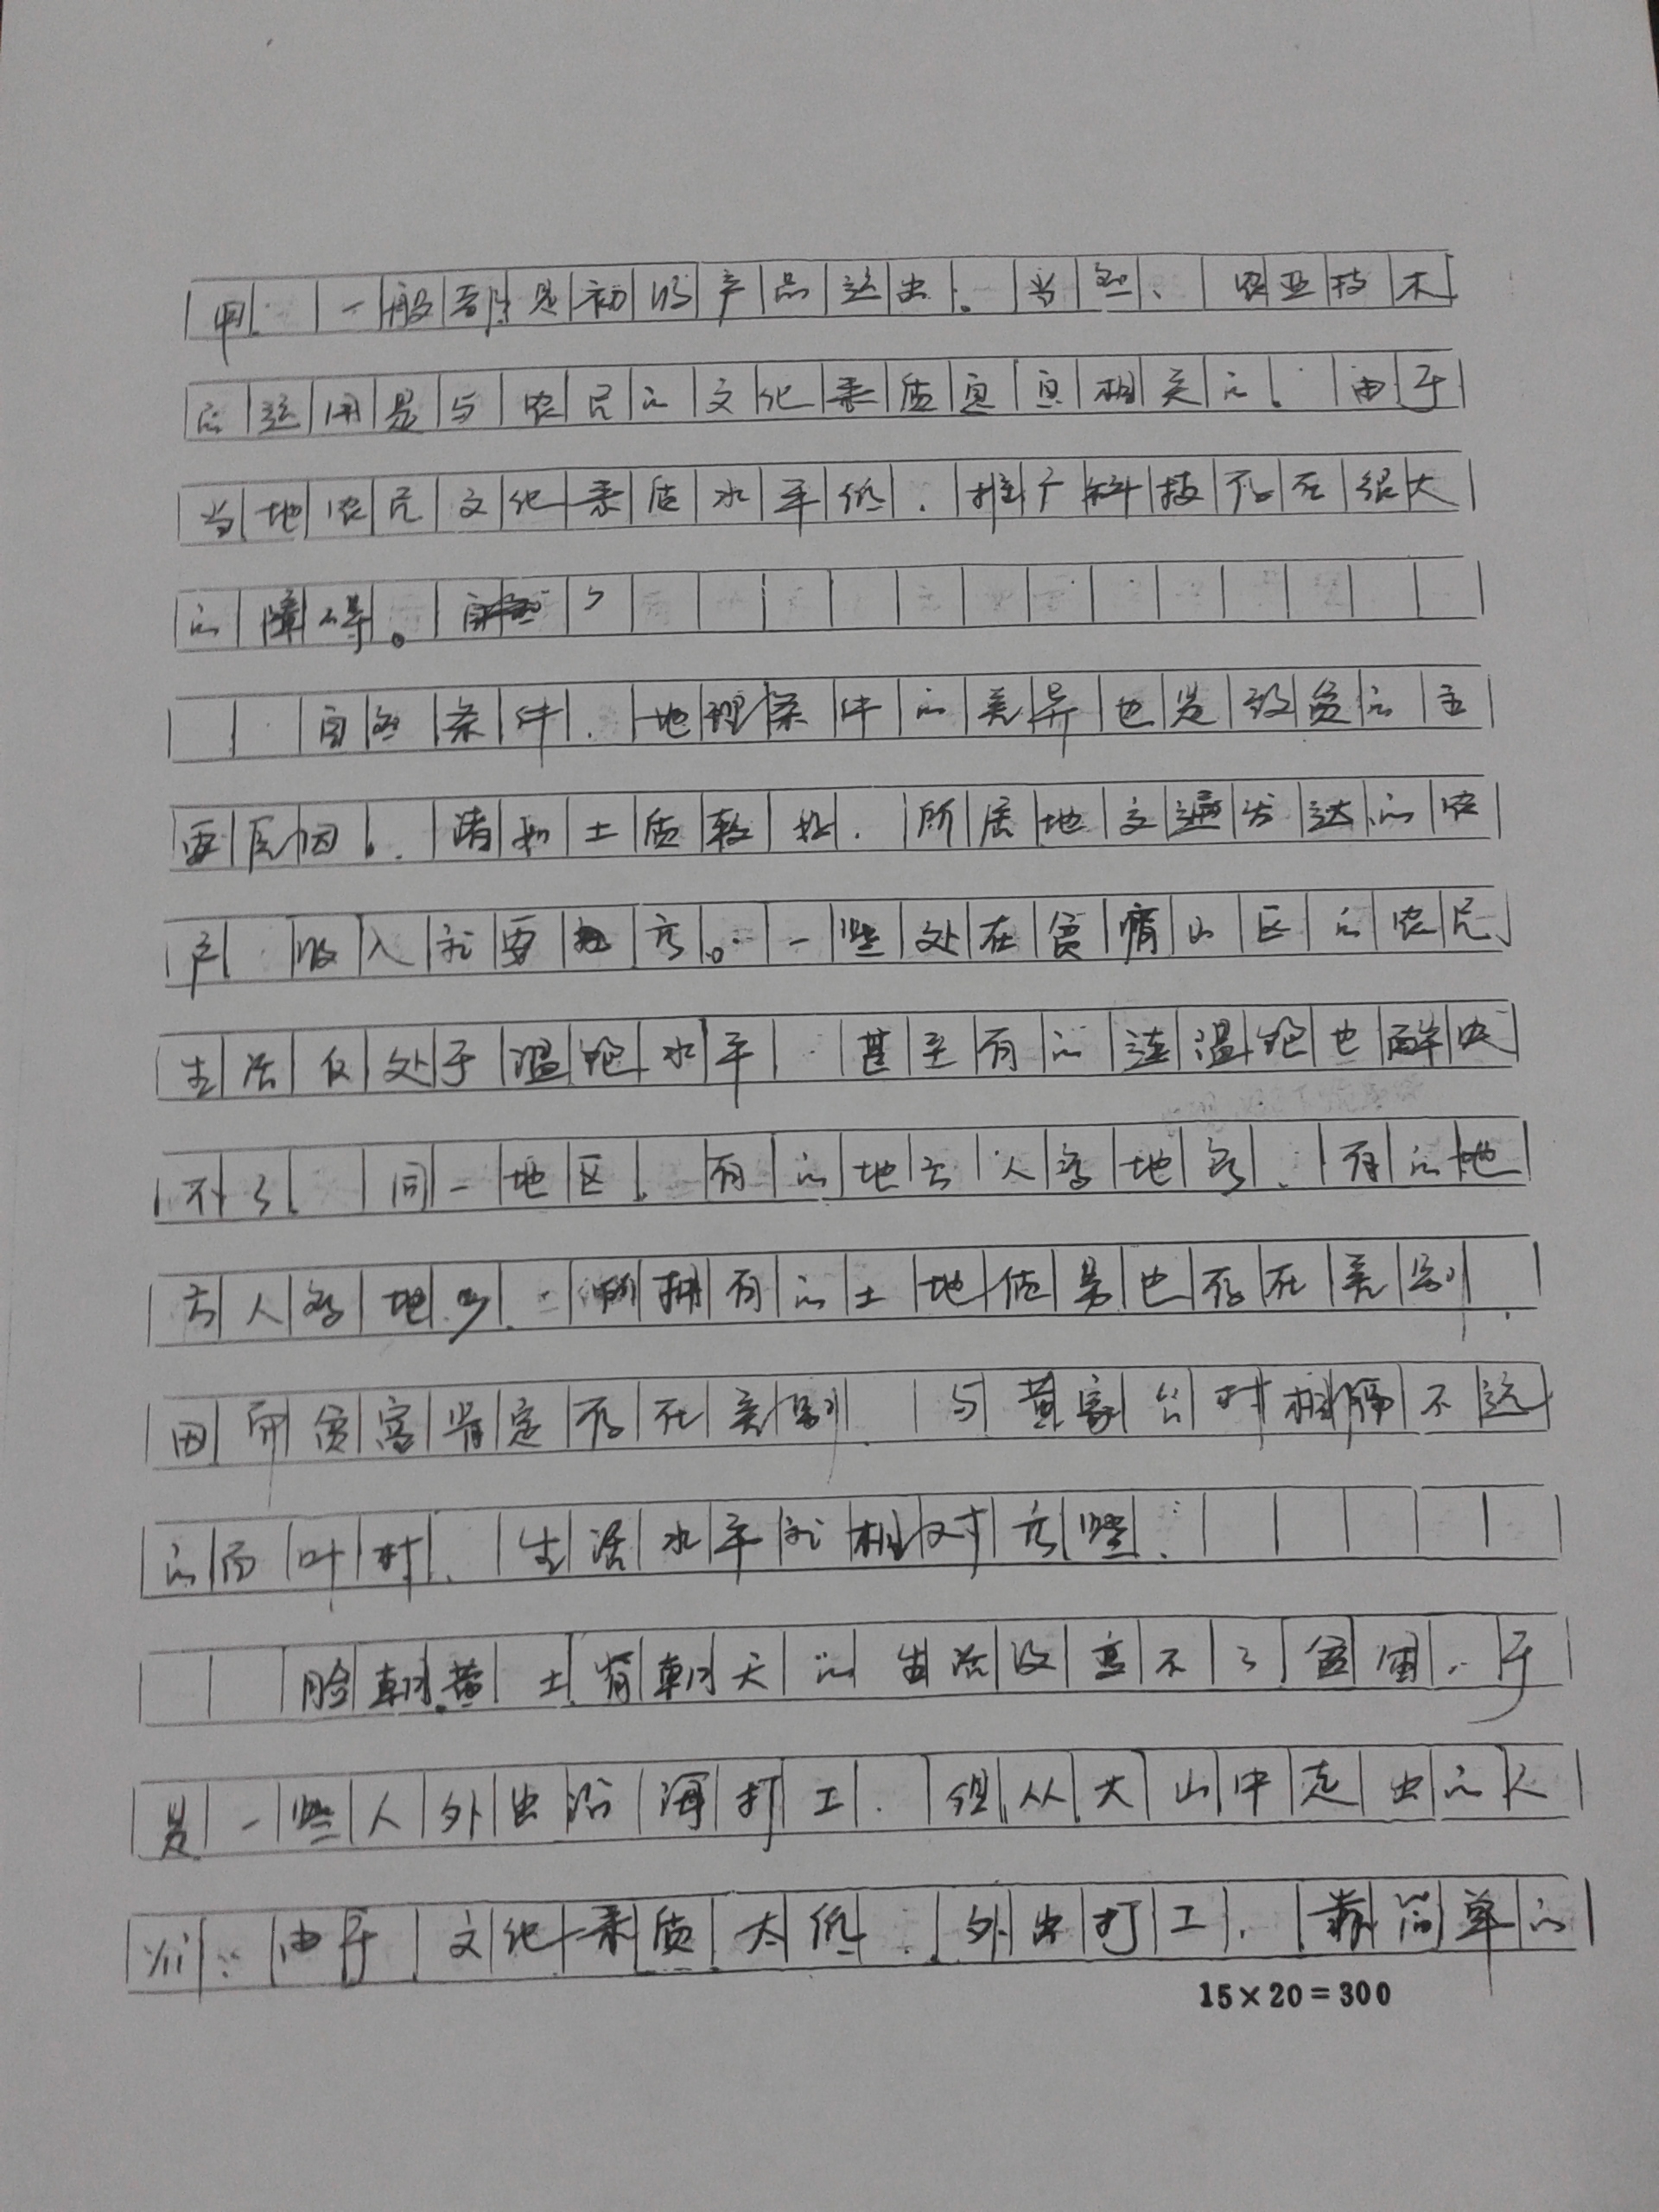 用，一般都是初级产品送出。当然，农业技术
的运用是与农民的文化素质息息相关的。由于
当地农民文化素质水平低，推广科技存在很大
的障碍。
自然条件，地理条件的差异也是致贫的主
要原因。诸如土质较好，所居地交通发达的农
户 收入就要好些。一些处在贫瘠山区的农民
生活仅处于温饱水平，甚至有的连温饱也解决
不了。同一地区，有的地方人多地少，有的地
方人少地多，所拥有的土地使用也存在差别，
因而贫富肯定存在差别，与黄家公村相隔不远
的而叶村，生活水平就相对高些。
脸朝黄土背朝天的生活改变不了贫困，于
是一些人外出沿海打工，但从大山中走出的人
们：由于文化素质太低，外出打工，靠简单的
15×20=300